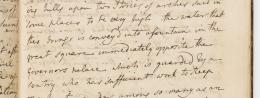 hills upon two stories of arches built in
some places to be very high the water that
this brings is conveyed into a fountain in the
great square immediately opposite the
Governors palace which is guarded by a
sentry who has sufficient work to keep
so many as are